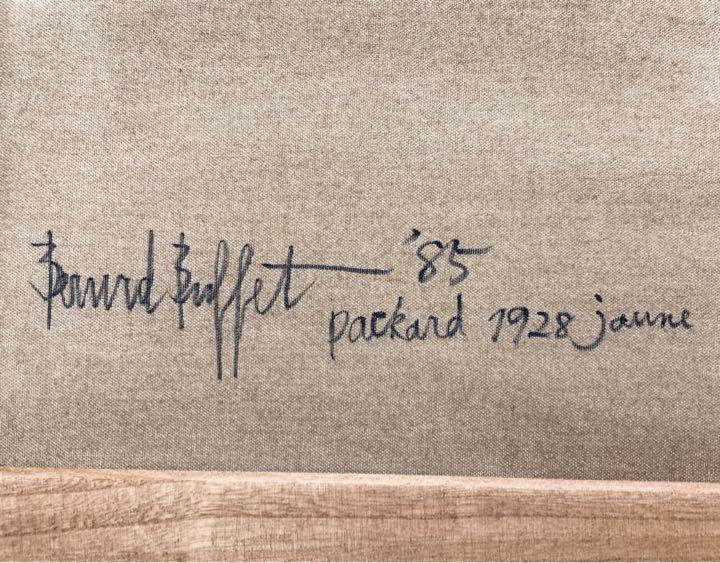 Bernard Buffet '85
packard 1928 jaune